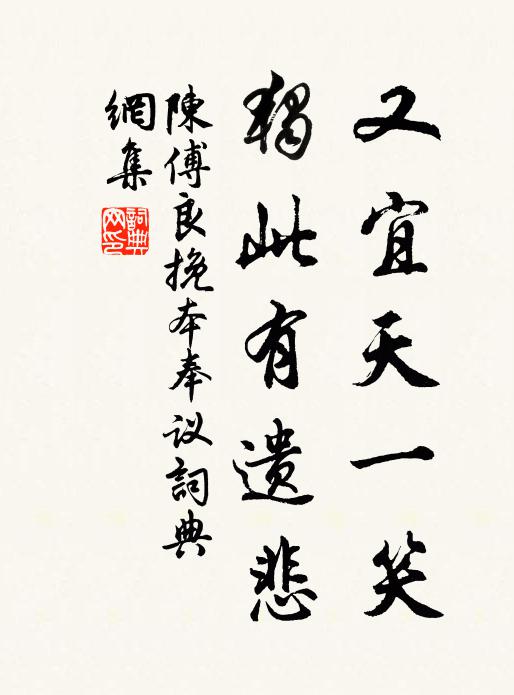 又宜天一笑
獨此有遺悲
陳傅良挽本奉议詞典
網集
詞典网印